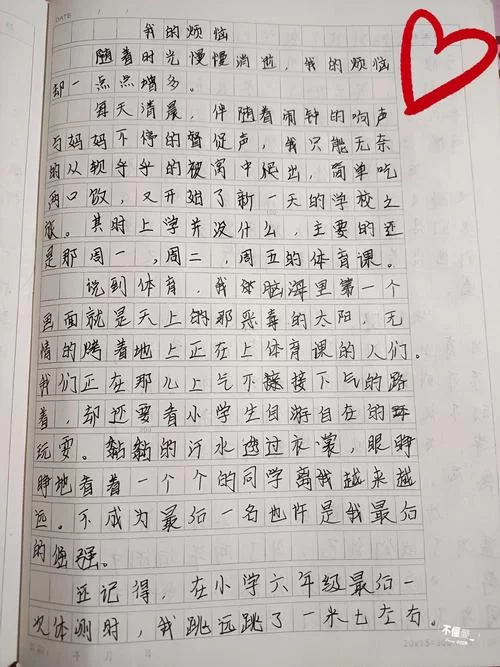 DATE
我的烦恼
随着时光慢慢消逝，我的烦恼
却一点点增多。
每天清晨，伴随着闹钟的响声
与妈妈不停的督促声，我只能无奈
的从软乎乎的被窝中爬出，简单吃
两口饭，又开始了新一天的学校之
旅。其时上学并没什么，主要的还
是那周一，周二，周五的体育课。
说到体育，我脑海里第一个
画面就是天上的那恶毒的太阳，无
情的烤着地上正在上体育课的人们。
我们正在那儿上气不接下气的跑
着，却还要看小学生自游自在的
玩耍。黏黏的汗水透过衣裳，眼睁
睁地看着一个个的同学离我越来越
远。不成为最后一名也许是我最后
的倔强。
还记得，在小学六年级最后一
次体测时，我跳远跳了一米七左右。